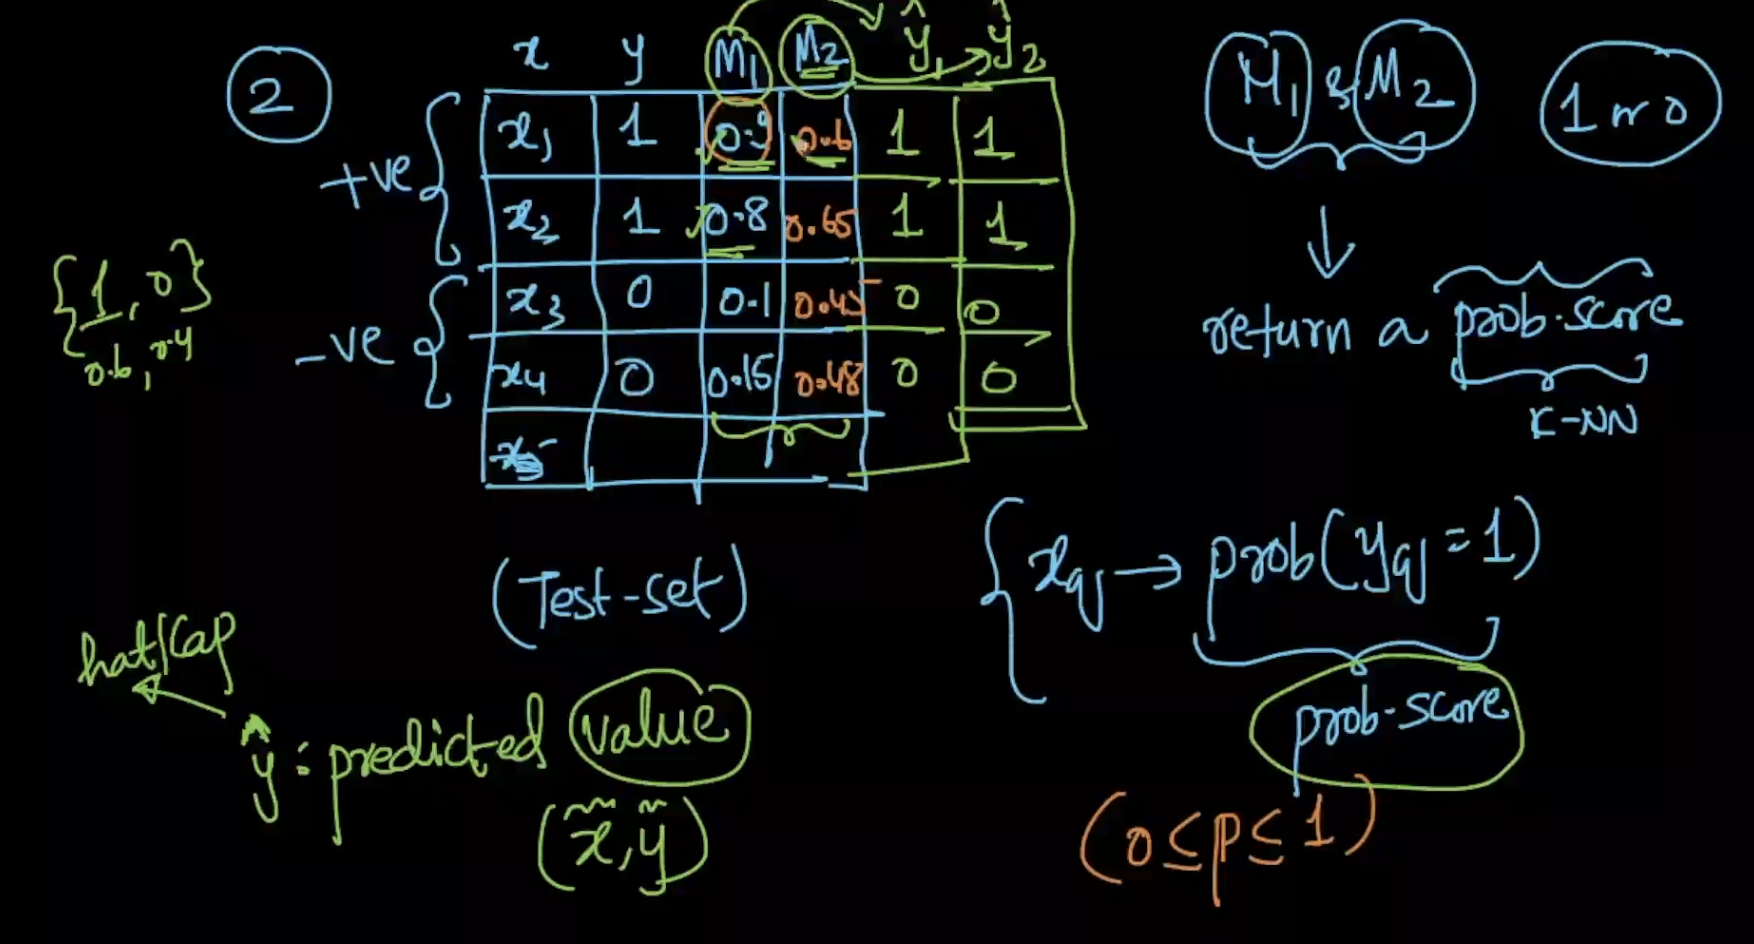 2
x y M1 M2 ŷ1 ŷ2
+ve
x1 1 0.9 0.6 1 1
x2 1 0.8 0.65 1 1
-ve
x3 0 0.1 0.45 0 0
x4 0 0.15 0.48 0 0
x5
{1, 0}
0.6, 0.4
(Test-set)
hat/cap
ŷ: predicted value
(x̃, ỹ)
M1 & M2
1 or 0
return a prob.score
K-NN
xq → prob(yq = 1)
prob-score
(0 ≤ p ≤ 1)